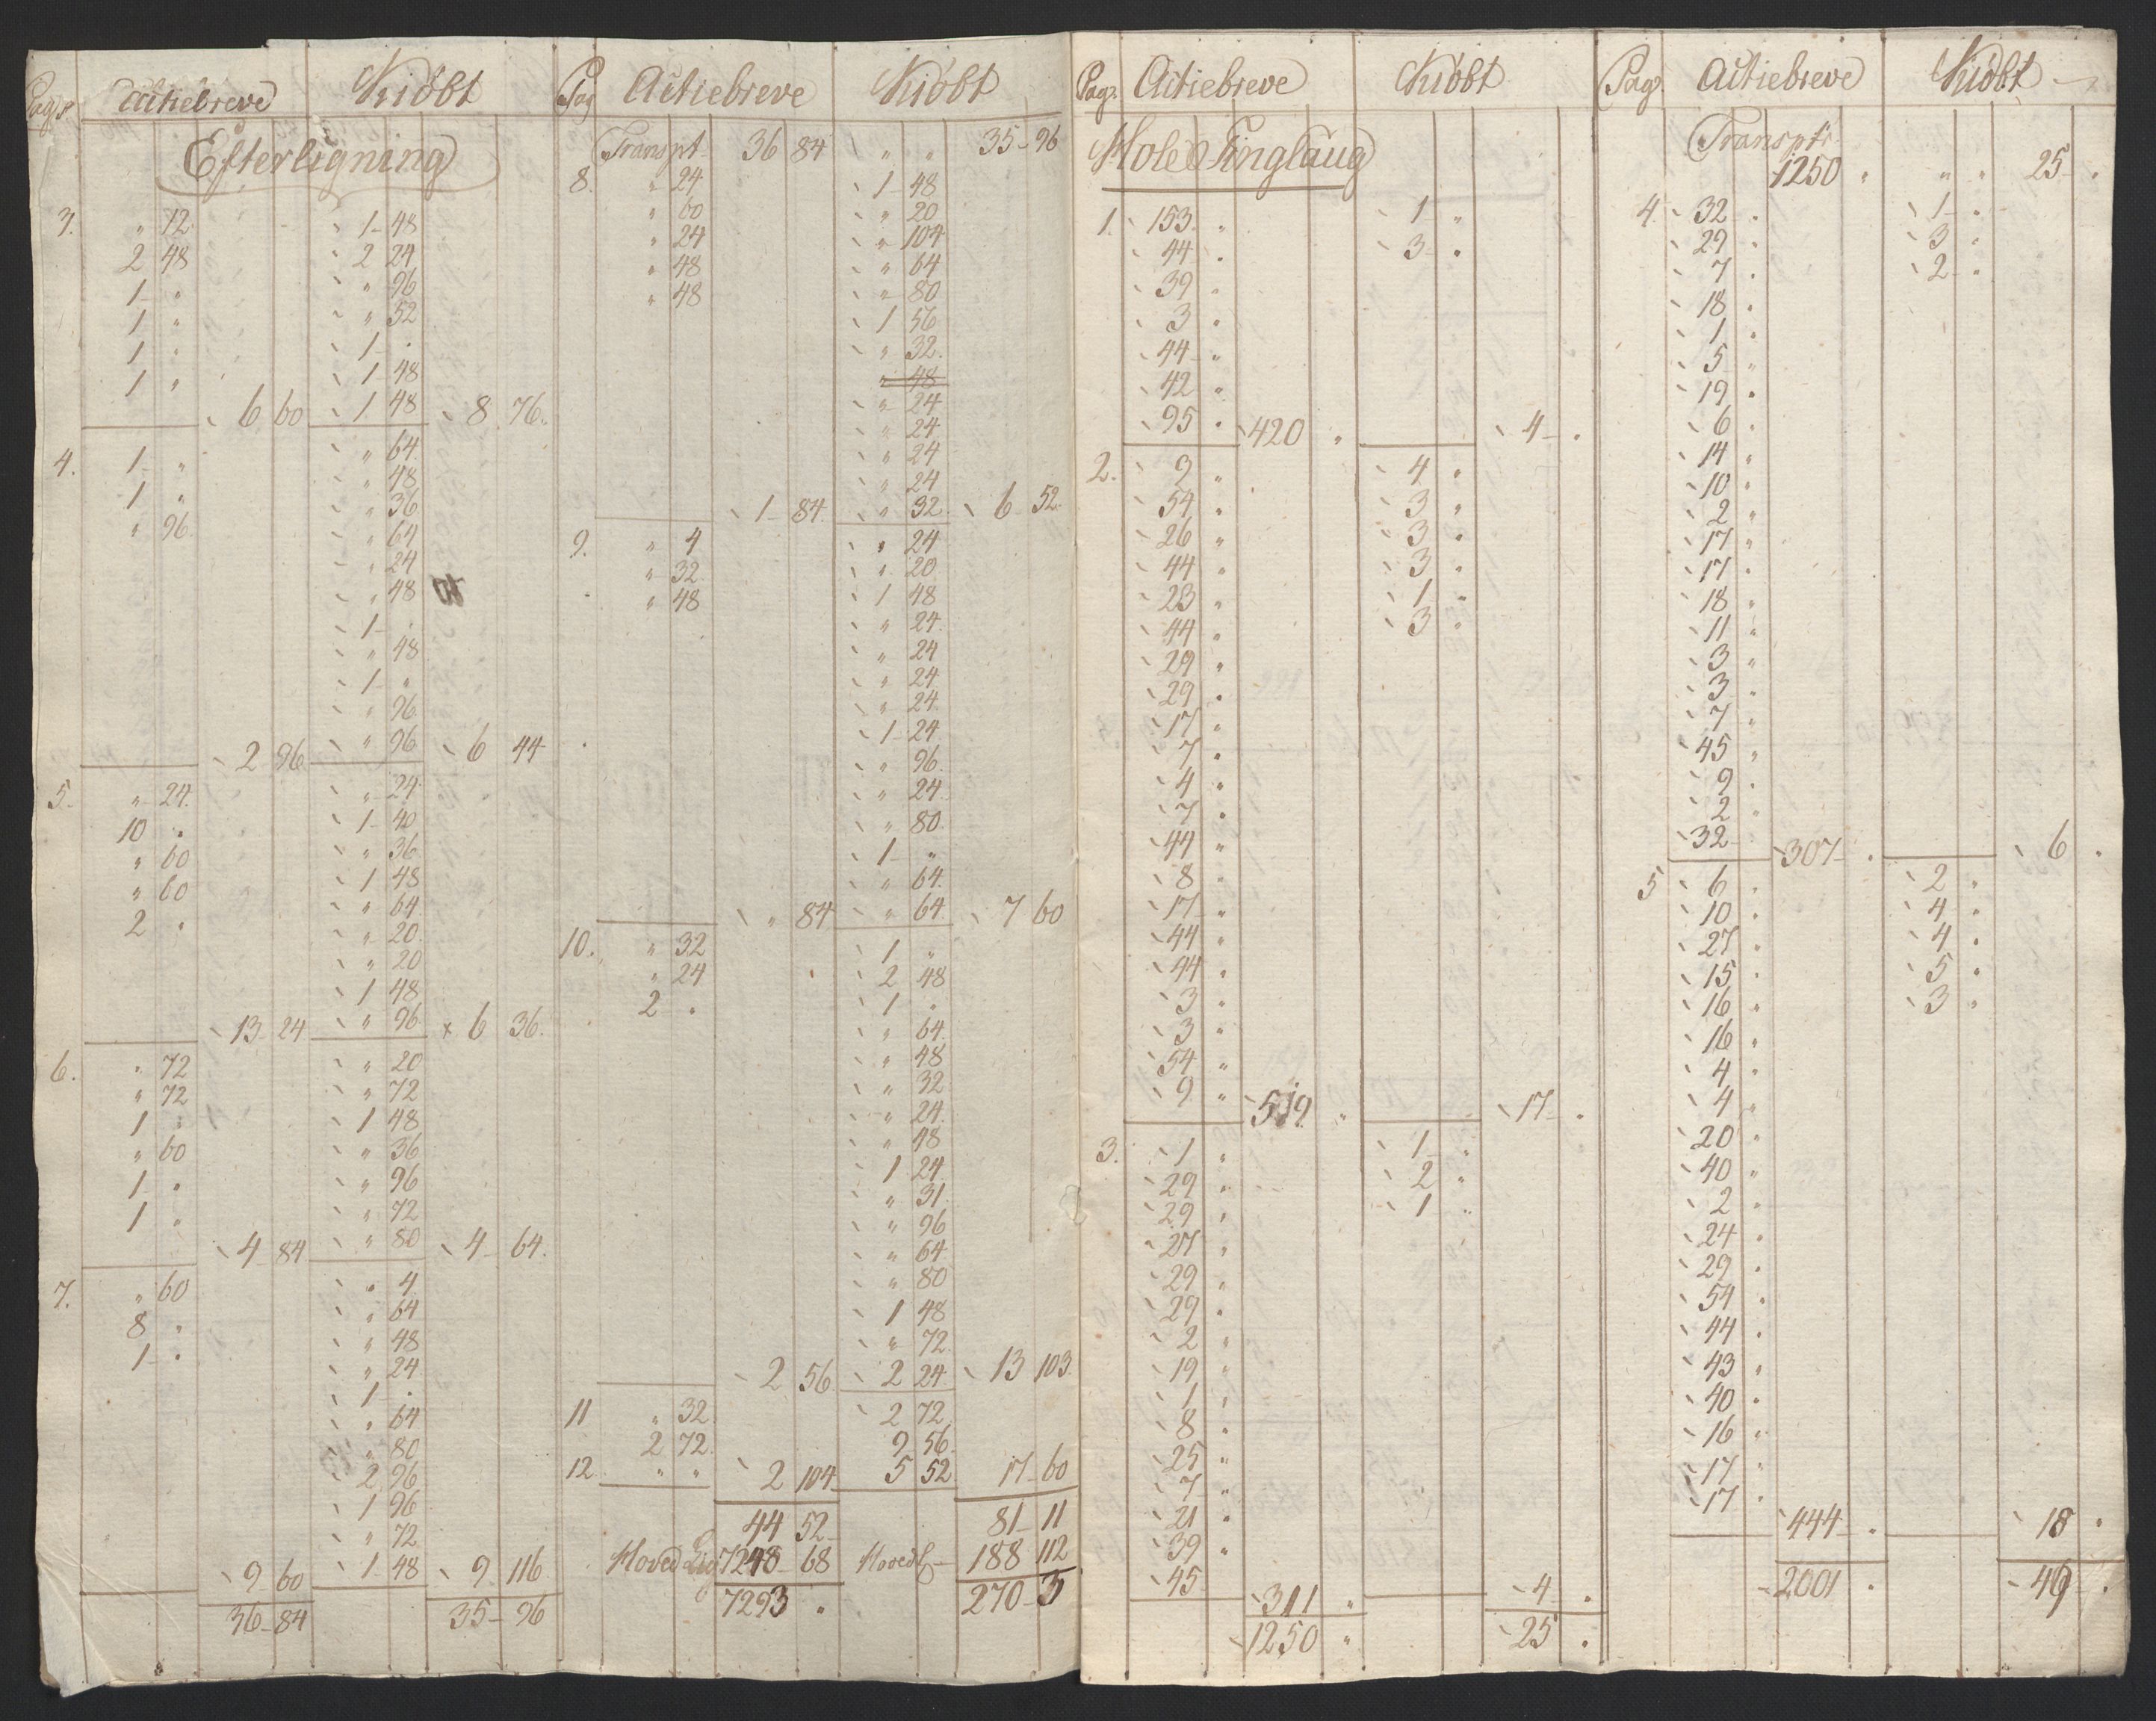 Pag. Actiebreve Kiöbt
Efterligning
3. " 12. 1 48
2 48 2 24
1 " " 96
1 " " 52
1 " 1 "
1 " 1 48
6 60 1 48 8 76.
4. 1 " " 64
1 " " 48
" 96 " 36
" 64
" 24
" 48
1 "
" 48
1 "
" 96
2 96 " 96 6 44
5. " 24. " 24
10 " 1 40
" 60 " 36
" 60 1 48
2 " " 64
" 20
" 20
1 48
13 24 " 96 x 6 36.
6. " 72 " 20
" 72 " 72
1 " 1 48
" 60 " 36
1 " " 96
1 " " 72
4 84 " 80 4 64.
7. " 60 " 4
8 " " 64
1 " " 48
" 24
1 "
" 64
" 80
2 96
1 96
" 72
9 60 1 48 9 116
36 84 35 96
Pag Actiebreve Kiöbt
Transpt 36 84 " " 35 96
8. " 24 1 48
" 60 " 20
" 24 " 104
" 48 " 64
" 48 " 80
1 56
" 32.
" 48
" 24
" 24
" 24
" 24
1 84. " 32 6 52.
9. " 4 " 24
" 32 " 20
" 48 1 48
" 24
" 24
" 24
" 24
1 24
" 96
" 24
" 80
1 "
" 64
" 84 " 64 7 60
10. " 32 1 "
" 24 2 48
2 " 1 "
" 64
" 48
" 32
" 24
" 48
1 24
" 31
" 96
" 64
" 80
1 48
" 72
2 56 2 24 13 103.
11 " 32 2 72
2 72 9 56
12 " " 2 104 5 52 17 60
44 52 81 11
Hoved Lig 7248 68 Hoved L 188 112
7293 " 270 3
Pag. Actiebreve Kiöbt
Hole Tinglaug
1. 153. " 1 "
44 " 3 "
39 "
3 "
44 "
42 "
95 " 420 " 4 "
2. 9 " 4 "
54 " 3 "
26 " 3 "
44 " 3 "
23 " 1 "
44 " 3 "
29 "
29 "
17 "
7 "
4 "
7 "
44 "
8 "
17 "
44 "
44 "
3 "
3 "
54 "
9 " 519. " 17 "
3. 1 " 1 "
29 " 2 "
29 " 1 "
27 "
29 "
29 "
2 "
19 "
1 "
8 "
25 "
7 "
21 "
39 "
45 311 " 4 "
1250 " 25 "
Pag. Actiebreve Kiöbt
Transptr.
1250 " " " 25 "
4 32 " 1 "
29 " 3 "
7 " 2 "
18 "
1 "
5 "
19 "
6 "
14 "
10 "
2 "
17 "
17 "
18 "
11 "
3 "
3 "
7 "
45 "
9 "
2 "
32 307 " 6 "
5 6 " 2 "
10 " 4 "
27 " 4 "
15 " 5 "
16 " 3 "
16 "
4 "
4 "
20 "
40 "
2 "
24 "
29 "
54 "
44 "
43 "
40 "
16 "
17 "
17 " 444 " 18 "
2001 " 49 "